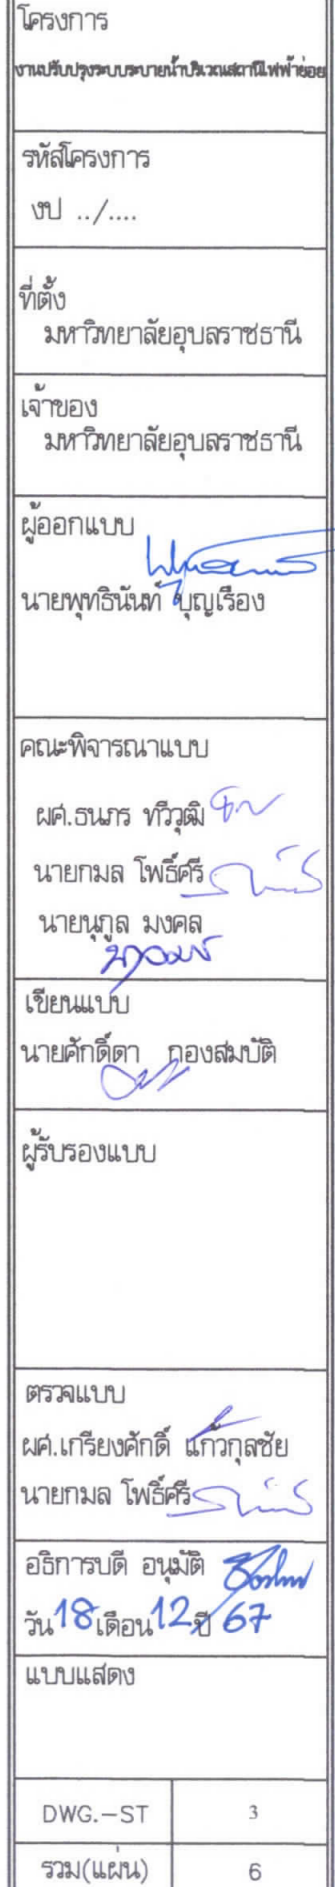 โครงการ
งานปรับปรุงระบบระบายน้ำบริเวณสถานีไฟฟ้าย่อย
รหัสโครงการ
งป ../....
ที่ตั้ง
มหาวิทยาลัยอุบลราชธานี
เจ้าของ
มหาวิทยาลัยอุบลราชธานี
ผู้ออกแบบ
นายพุทธินันท์ บุญเรือง
คณะพิจารณาแบบ
ผศ.ธนภร ทวีวุฒิ
นายกมล โพธิ์ศรี
นายนุกูล มงคล
เขียนแบบ
นายศักดิ์ดา กองสมบัติ
ผู้รับรองแบบ
ตรวจแบบ
ผศ.เกรียงศักดิ์ แก้วกุลชัย
นายกมล โพธิ์ศรี
อธิการบดี อนุมัติ
วัน 18 เดือน 12 ปี 67
แบบแสดง
DWG.-ST 3
รวม(แผ่น) 6